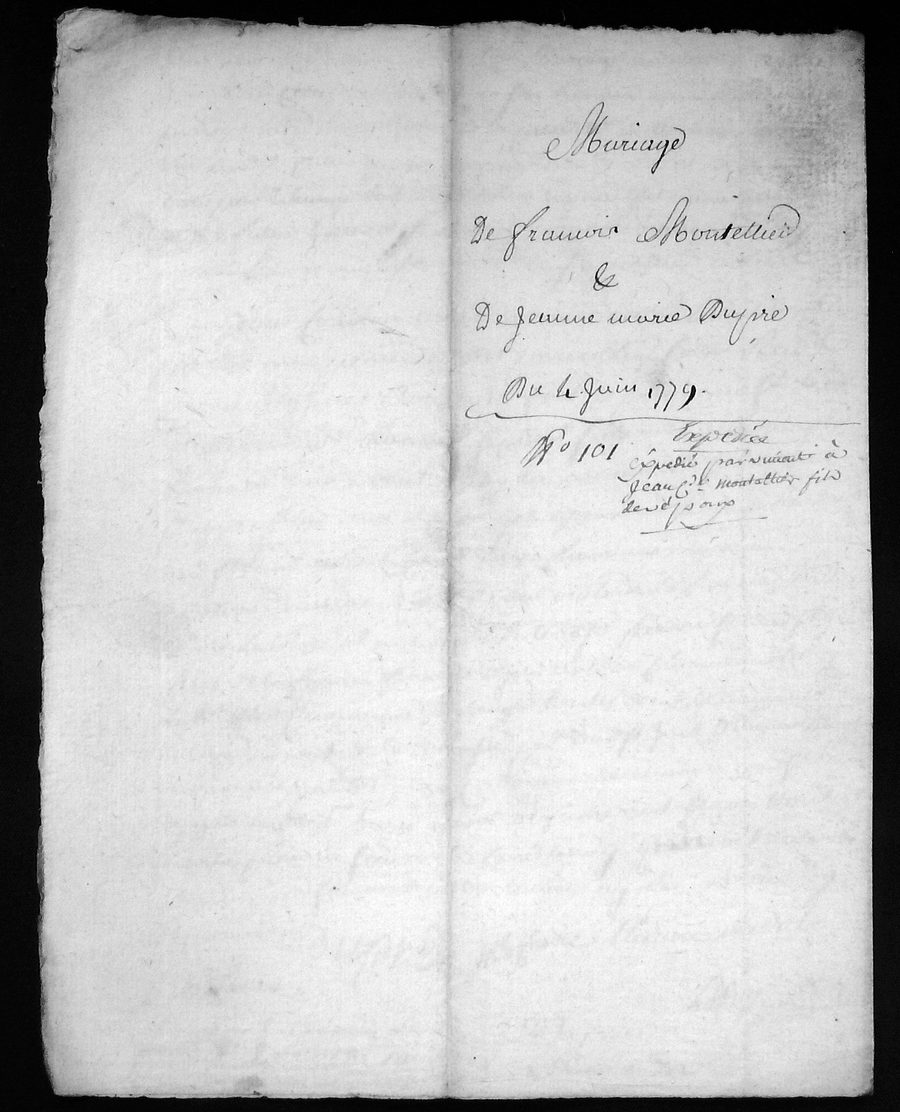 Mariage
De francois Montellier
&
De Jeanne marie Dupré
Du 4 Juin 1779.
No 101
Expediée
éxpedié à
Jean montellier fils
des époux